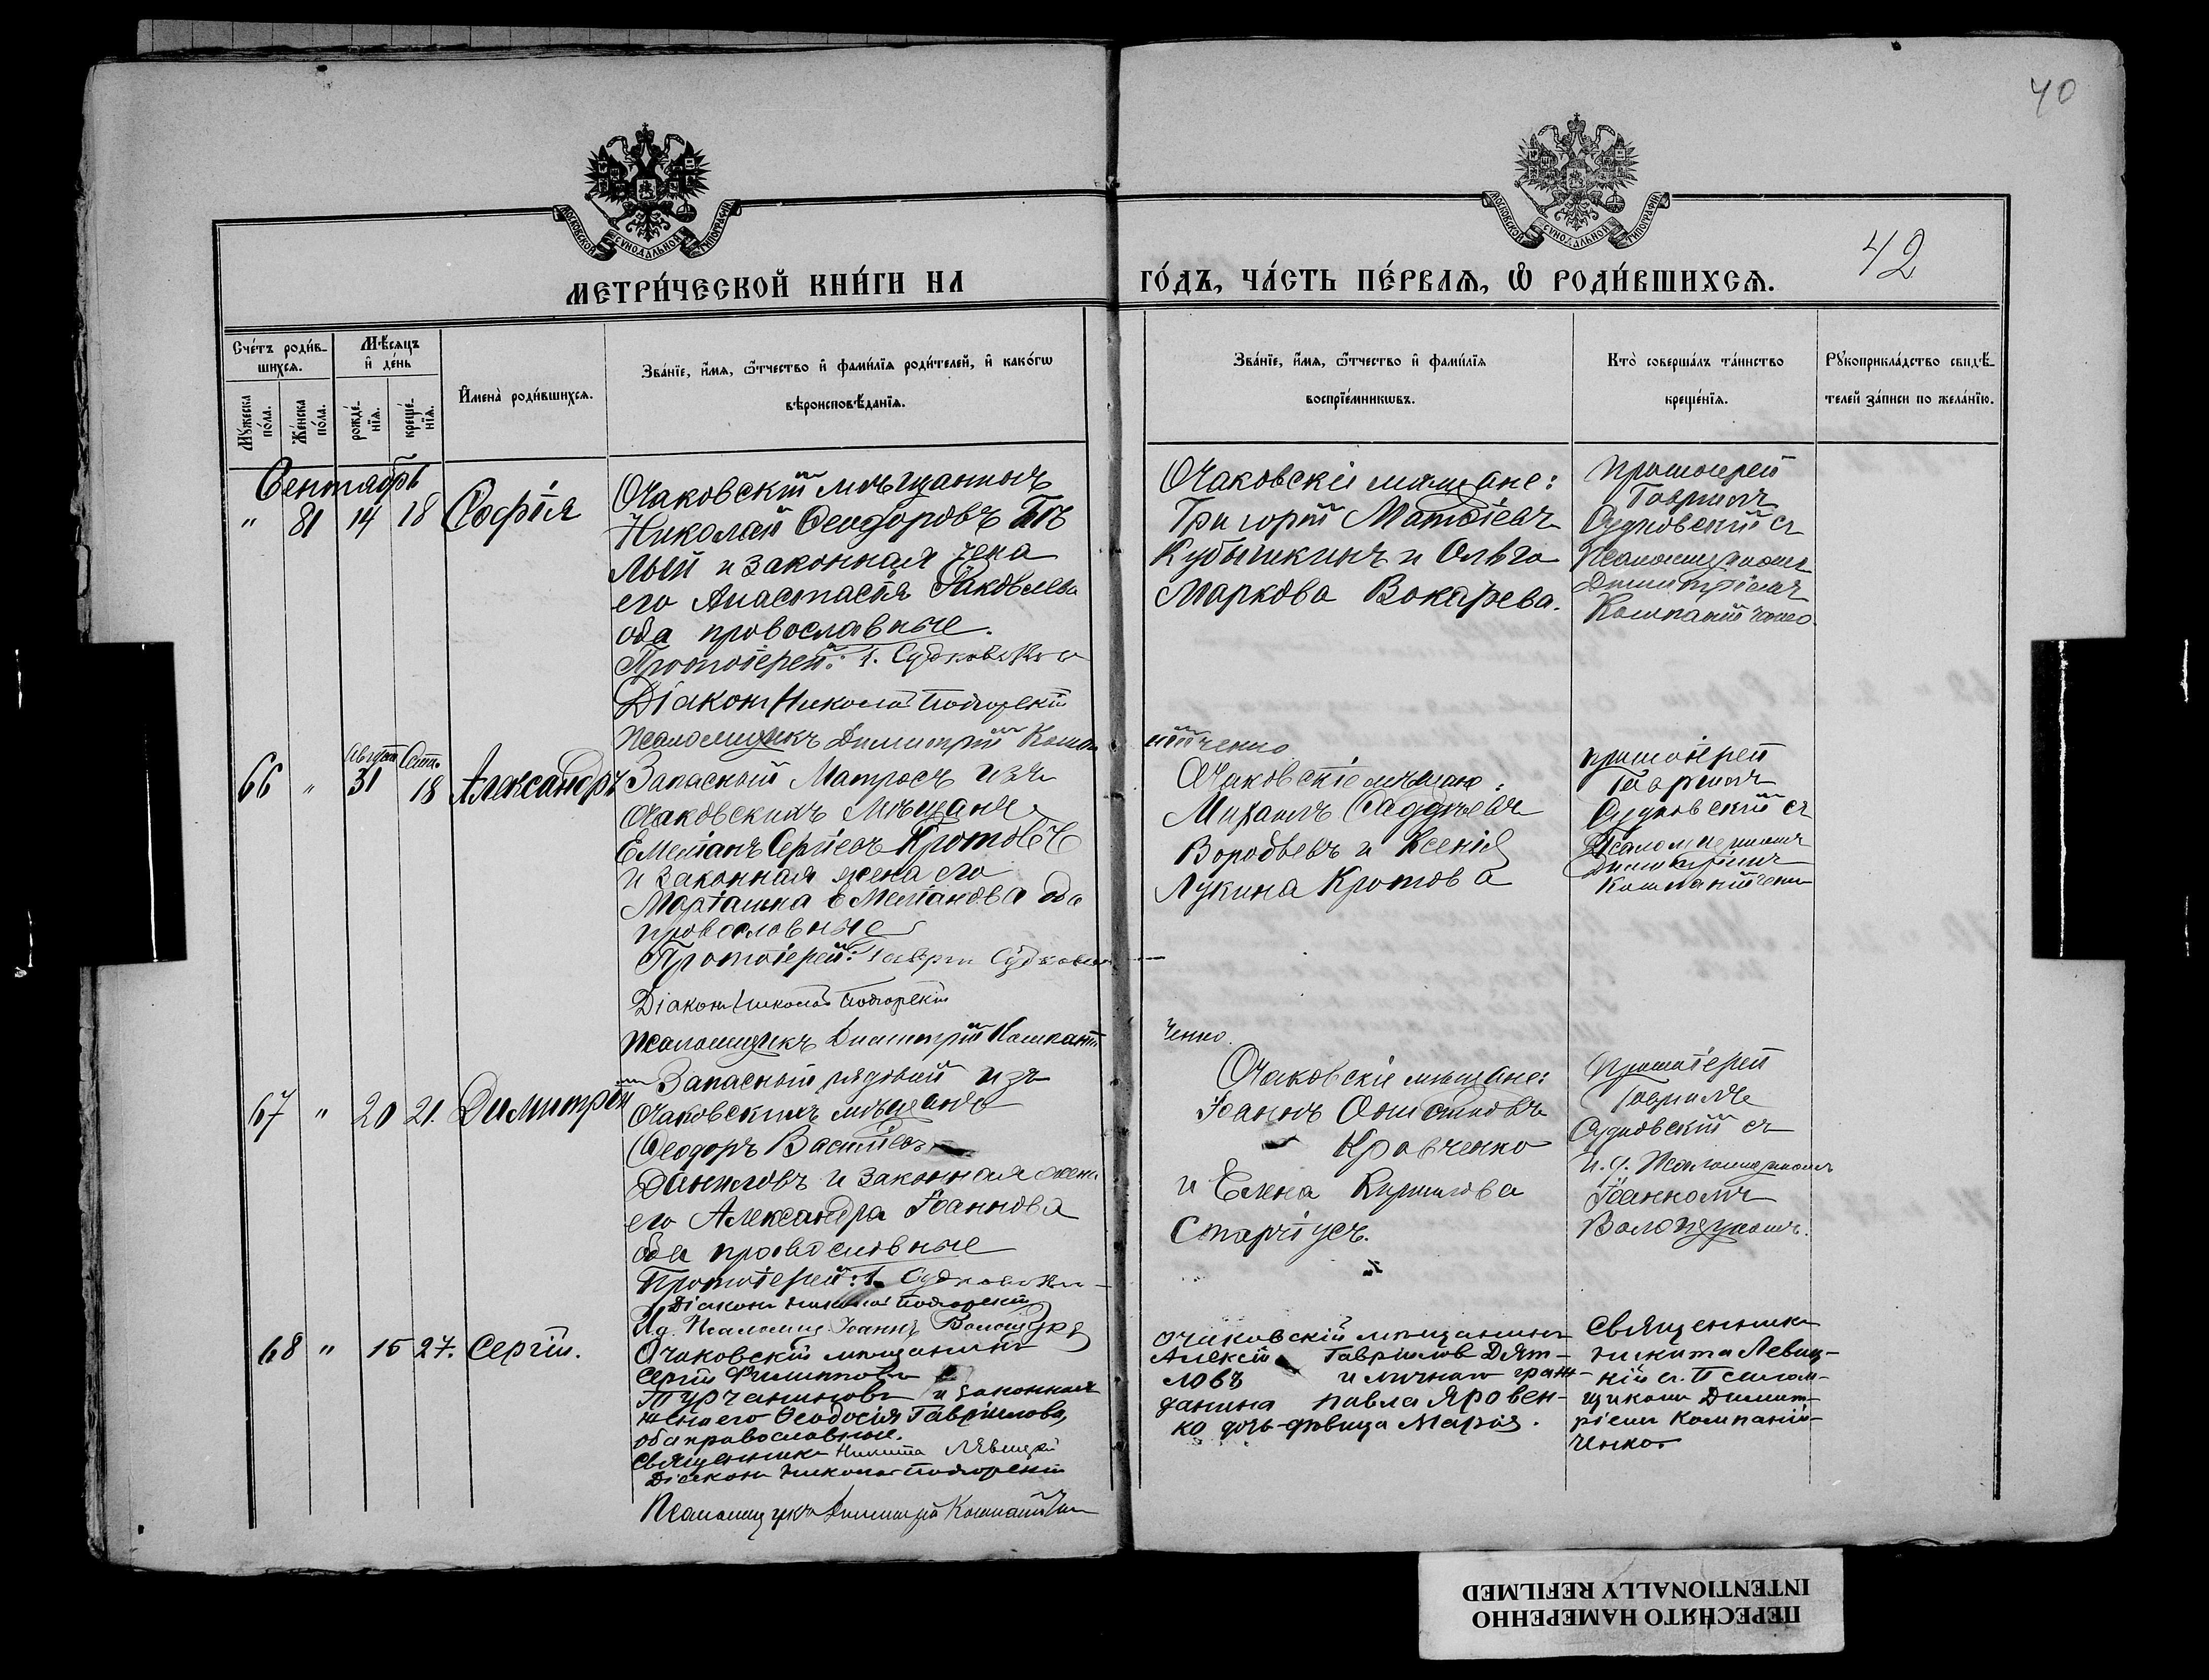 40
МОСКОВСКОЙ СУНОДАЛЬНОЙ ТИПОГРАФІИ
МОСКОВСКОЙ СУНОДАЛЬНОЙ ТИПОГРАФІИ
42
МЕТРИ́ЧЕСКОЙ КНИ́ГИ НА
ГО́ДЪ, ЧА́СТЬ ПЕ́РВАѦ, Ѡ҆ РОДИ́ВШИХСѦ.
Сче́тъ роди́в-
шихсѧ.
Мꙋ́жеска
по́ла.
Же́нска
по́ла.
Мѣ́сѧцъ
и҆ де́нь
рожде́-
нїѧ.
креще́-
нїѧ.
И҆мена̀ роди́вшихсѧ.
Зва́нїе, и҆́мѧ, ѻ҆́тчество и҆ фами́лїѧ роди́телей, и҆ како́гѡ
вѣроисповѣ́данїѧ.
Зва́нїе, и҆́мѧ, ѻ҆́тчество и҆ фами́лїѧ
воспрїе́мникѡвъ.
Кто̀ соверша́лъ та́инство
креще́нїѧ.
Рꙋкоприкла́дство свидѣ́-
телей за́писи по жела́нїю.
Сентябрь
" 81 14 18 Софія
Очаковскій мѣщанинъ
Николай Ѳеодоровъ Бѣ
лый и законная жена
его Анастасія Іаковлева
оба православные.
Протоіерей: Г. Судковскій
Діаконъ Николай Подгорскій
Псаломщикъ Димитрій Компа
нійченко
Очаковскіе мѣщане:
Григорій Матѳіевъ
Кубышкинъ и Ольга
Маркова Вокарева.
Протоіерей
Гавріилъ
Судковскій съ
Псаломщикомъ
Димитріемъ
Компанійченко.
Августъ Сент.
66 " 31 18 Александръ
Запасный Матросъ изъ
Очаковскихъ Мѣщанъ
Емеліанъ Сергіевъ Кротовъ
и законная жена его
Маріанна Емеліанова оба
православные
Протоіерей: Гавріи Судковскій
Діаконъ Николай Подгорскій
Псаломщикъ Димитрій Компаній
ченко.
Очаковскіе мѣщане:
Михаилъ Ѳаддѣевъ
Воробьевъ и Ксенія
Лукина Кротова
Протоіерей
Гавріилъ
Судковскій съ
Псаломщикомъ
Димитріемъ
Компанійченко
67 " 20 21. Димитрій
Запасный рядовый изъ
Очаковскихъ мѣщанъ
Ѳеодоръ Василіевъ
Даниловъ и законная жена
его Александра Іоаннова
оба православные
Протоіерей: Г. Судковскій
Діаконъ Николай Подгорскій
И.д. Псаломщ. Іоаннъ Волощукъ
Очаковскіе мѣщане:
Іоаннъ
Кравченко
и Елена Кириллова
Старчіусъ.
Протоіерей
Гавріилъ
Судковскій съ
и. д. Псаломщикомъ
Іоанномъ
Волощукомъ.
68 " 15 27. Сергій.
Очаковскій мѣщанинъ
Сергій Филипповъ
Турчаниновъ и законная
жена его Ѳеодосія Гавріилова,
оба православные.
Священникъ Никита Левицкій
Діаконъ Николай Подгорскій
Псаломщикъ Димитрій Компанійченко
очаковскій мѣщанинъ
Алексій Гавріиловъ Дят-
ловъ и личнаго граж-
данина Павла Яровен-
ко дочь-дѣвица Марія.
Священникъ
Никита Левиц-
кій съ Псалом-
щикомъ Димит-
ріемъ Компаній-
ченко.
ПЕРЕСНЯТО НАМЕРЕННО
INTENTIONALLY REFILMED